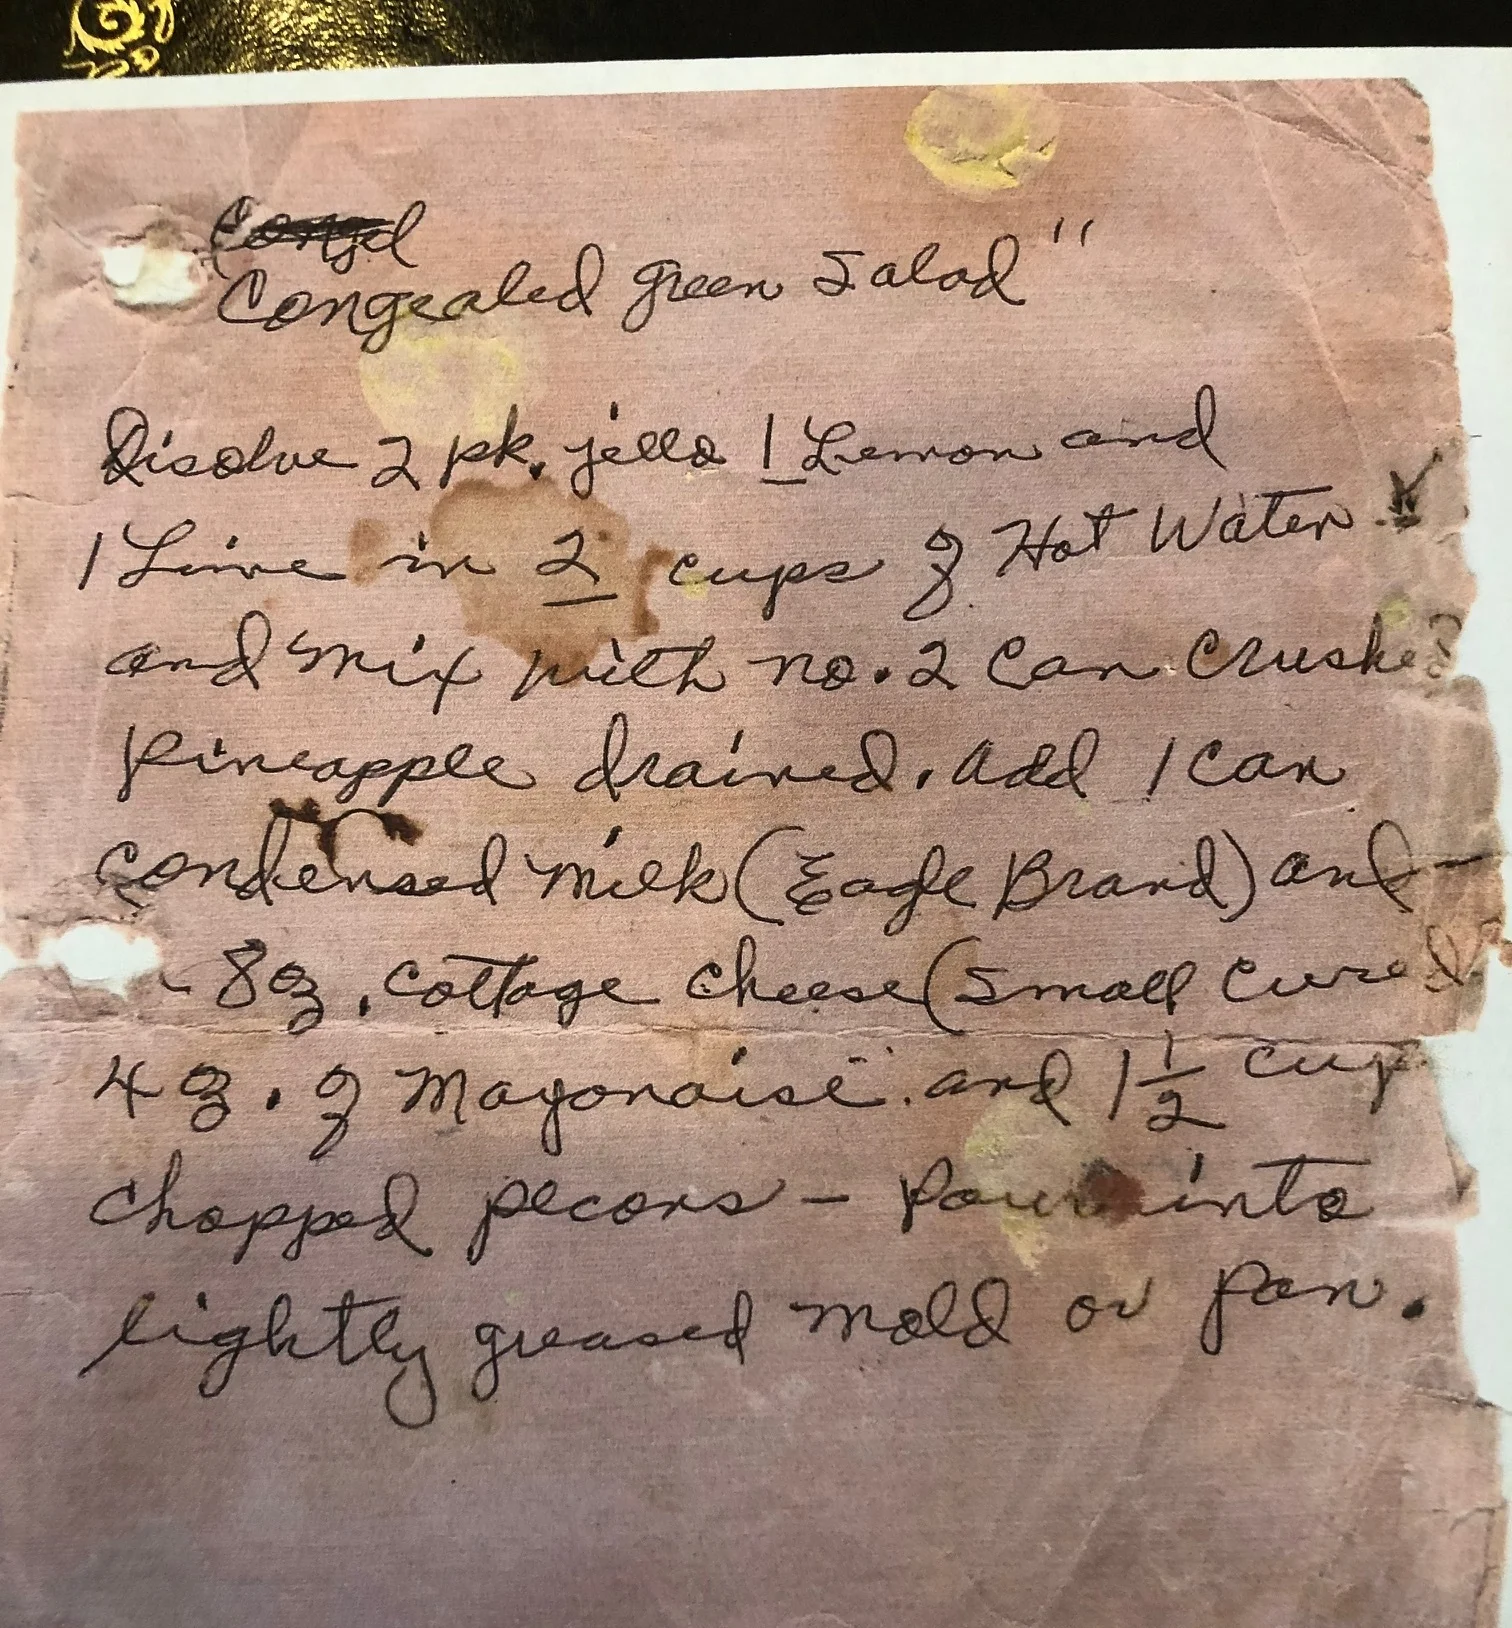 Congealed green Salad"
Disolve 2 pk. jello 1 Lemon and
1 Lime in 2 cups of Hot Water
and mix with no. 2 Can Crushed
pineapple drained. add 1 can
condensed milk (Eagle Brand) and
8 oz. cottage cheese (small curd
4 oz. of Mayonaise. and 1 1/2 cup
chopped pecans - pour into
lightly greased mold or pan.